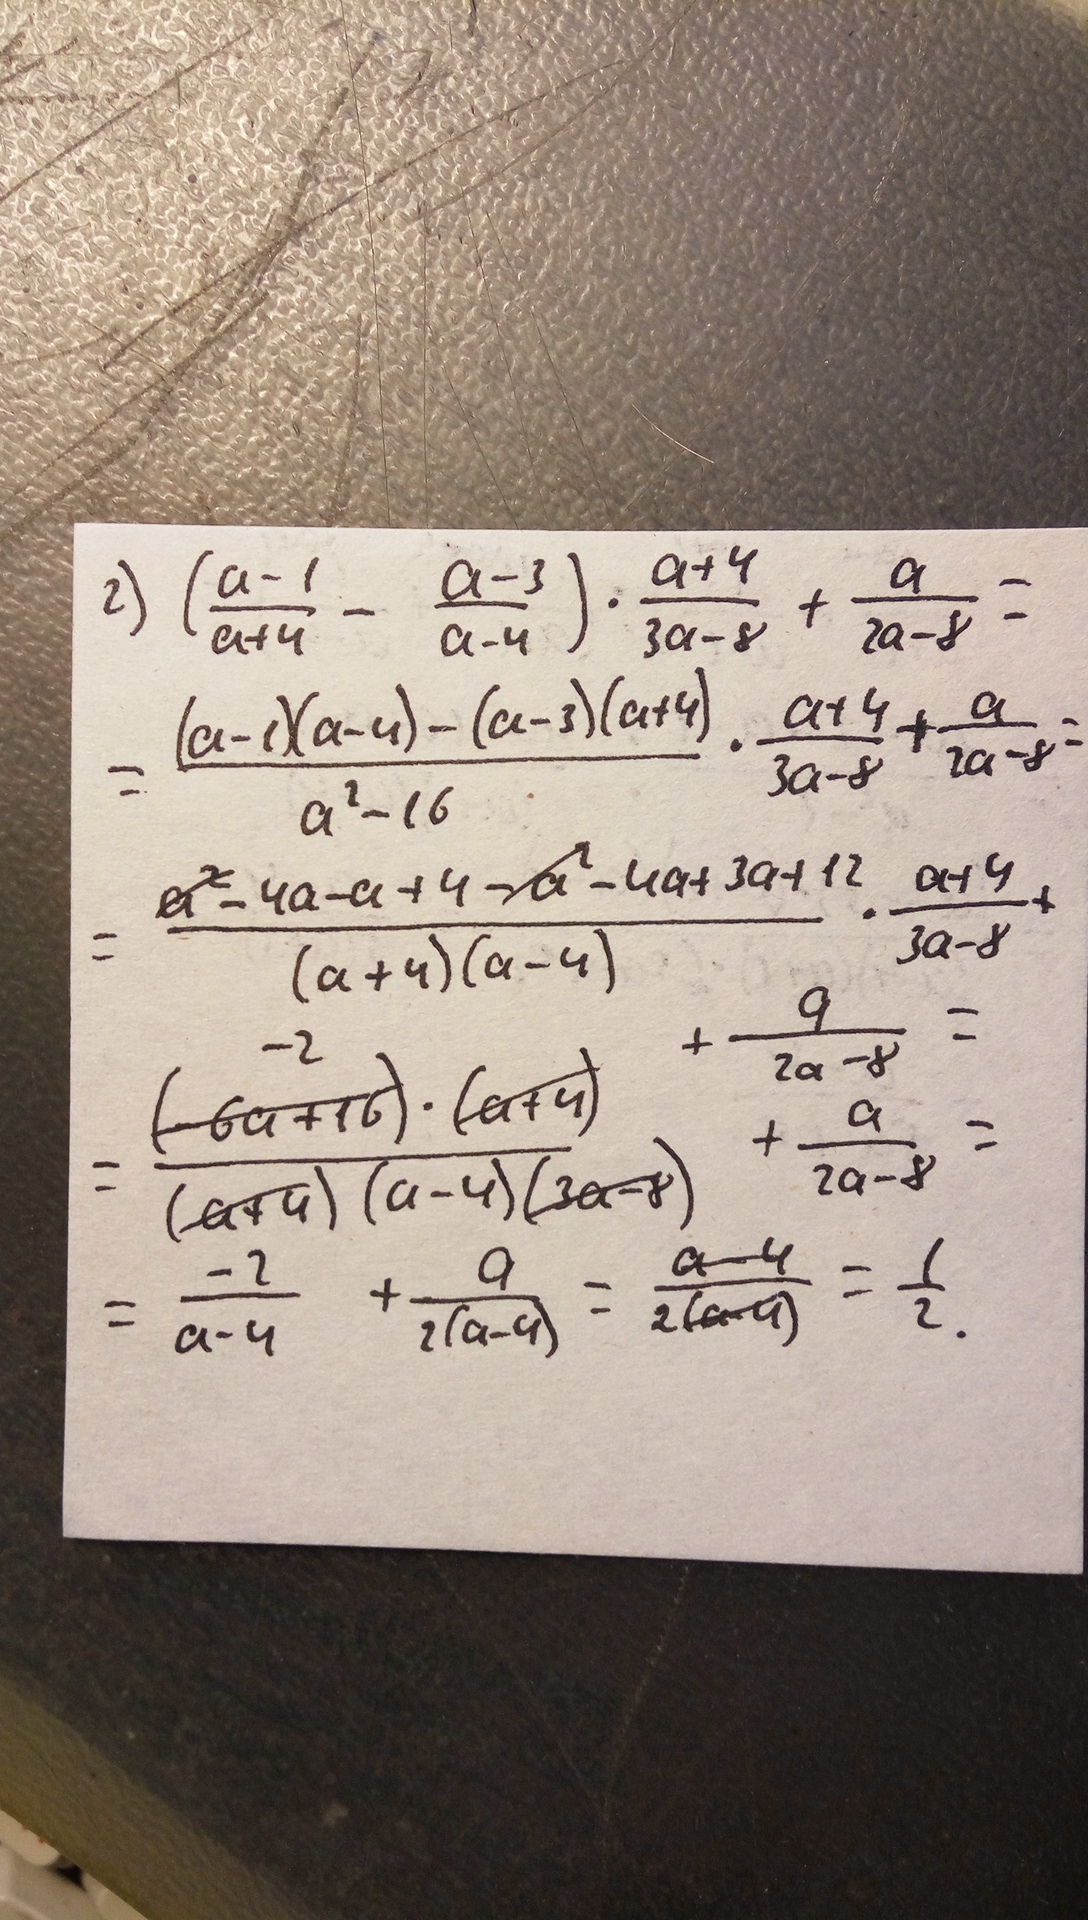 2) (a-1/a+4 - a-3/a-4) · a+4/3a-8 + a/2a-8 =
= (a-1)(a-4)-(a-3)(a+4)/a²-16 · a+4/3a-8 + a/2a-8 =
= a²-4a-a+4-a²-4a+3a+12/(a+4)(a-4) · a+4/3a-8 +
+ a/2a-8 =
-2
= (-6a+16)·(a+4)/(a+4)(a-4)(3a-8) + a/2a-8 =
= -2/a-4 + a/2(a-4) = a-4/2(a-4) = 1/2.